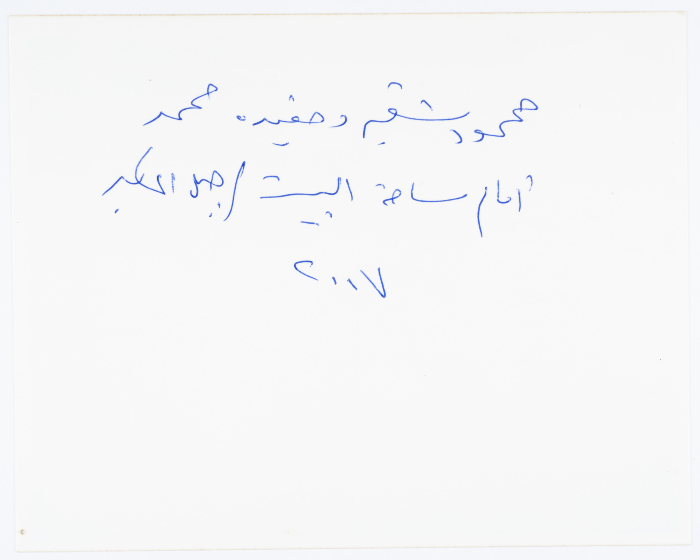 محمود شقير وحفيده محمد
أمام ساحة البيت / جبل المكبر
٢٠١٧